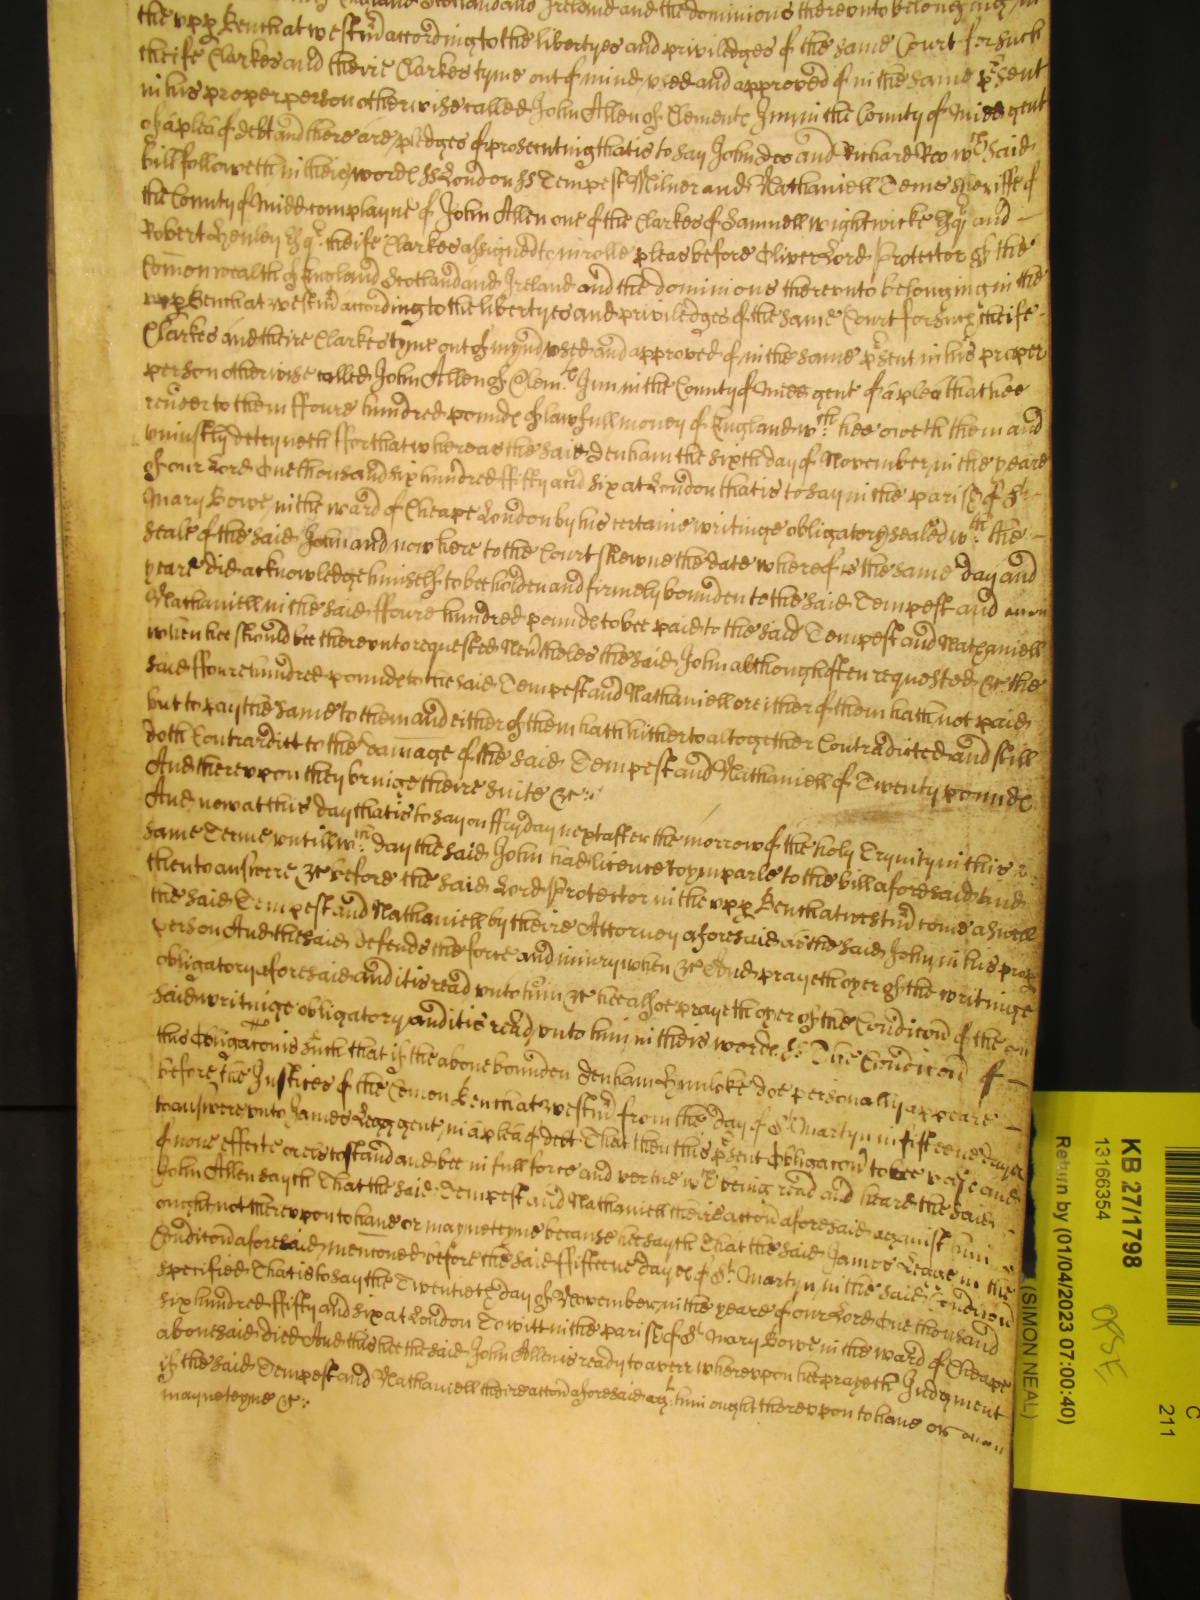 England Scotland and Ireland and the dominions therevnto belonging in
the vpp Bench at Westm̃ according to the libertyes and priviledges of the same Court for such
cheife Clarkes and theire Clarkes tyme out of mind vsed and approved of in the same p̃sent
in his proper person otherwise called John Allen of Clements Inn in the County of Midd gent
of a plea of debt and there are pledges of prosecuting that is to say John Doo and Richard Roo wch said
bill followeth in theis wordes ss London ss Tempest Milner and Nathaniell Tems Sheriffe of
the County of Midd complayne of John Allen one of the Clarkes of Samuell Wightwicke Esqr and
Robert Henley Esqr cheife Clarkes assigned to inrolle pleas before Oliver Lord Protector of the
Comonwealth of England Scotland and Ireland and the dominions therevnto belonging in the
vpp Bench at Westm̃ according to the libertyes and priviledges of the same Court for such cheife
Clarkes and theire Clarkes tyme out of mynd vsed and approved of in the same p̃sent in his proper
person otherwise called John Allen of Clemts Inn in the County of Midd gent of a plea that hee
render to them ffoure hundred poundes of lawfull money of England wch hee oweth them and
vniustly deteyneth ffor that whereas the said Denham the sixth day of November in the yeare
of our Lord One thousand six hundred ffifty and six at London that is to say in the parish of St
Mary Bowe in the ward of Cheape London by his certaine writinge obligatory sealed wth the
seale of the said John and now here to the Court shewne the date whereof is the same day and
yeare did acknowledge himself to bee holden and firmely bounden to the said Tempest and
Nathaniell in the said ffoure hundred poundes to bee paid to the said Tempest and Nathaniell
when hee should bee therevnto requested Nev̄theles the said John although often requested &c the
said ffoure hundred poundes to the said Tempest and Nathaniell or either of them hath not paid
but to pay the same to them and either of them hath hitherto altogether Contradicted and still
doth Contradict to the damage of the said Tempest and Nathaniell of Twenty poundes
And therevpon they bringe theire suite &c
And now at this day that is to say on ffryday next after the morrow of the holy Trynity in this
same Terme vntill wch day the said John had licence to imparle to the bill aforesaid And
then to answere &c before the said Lord Protector in the vpp Bench at Westm̃ come aswell
the said Tempest and Nathaniell by theire Attorney aforesaid as the said John in his prop
person And the said defends the force and iniury when &c And prayeth oyer of the writinge
obligatory aforesaid and it is read vnto him &c hee alsoe prayeth oyer of the Condicōn of the
said writinge obligatory and it is read vnto him in theis wordes ss The Condicōn of
this Obligacōn is such that if the aboue bounden Denham Hunloke doe personally appeare
before the Justices of the Comon bench at Westm̃ from the day of St Martyn in fifteene dayes
to answere vnto James Legg gent in a plea of debt That then this p̃sent Obligacōn to bee voyd and
of none effecte or els to stand and bee in full force and vertue wch being read and heard the said
John Allen sayth That the said Tempest and Nathaniell theire accōn aforesaid against him
ought not therevpon to haue or mayneteyne because hee sayth That the said James Legge in the
Condicōn aforesaid mencōned before the said ffifteene dayes of St Martyn in the said Condicōn
specified That is to say the Twentieth day of November in the yeare of our Lord One thousand
six hundred ffifty and six at London To witt in the parish of St Mary Bowe in the ward of Cheape
abouesaid died And this hee the said John Allen is ready to averr wherevpon hee prayeth Judgment
if the said Tempest and Nathaniell theire accōn aforesaid agt him ought therevpon to haue or
mayneteyne &c
KB 27/1798
13166354
Return by (01/04/2023 07:00:40)
(SIMON NEAL)
C
211